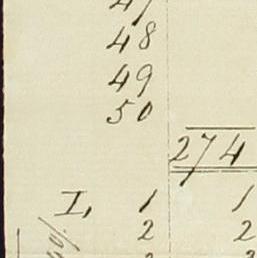 47
48
49
50
274
I, 1 1
2 2